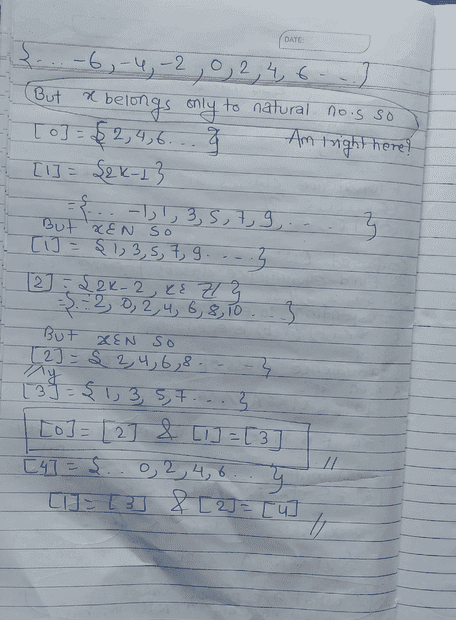 DATE:
{... -6, -4, -2, 0, 2, 4, 6 ...}
But x belongs only to natural no.s so
[0] = {2, 4, 6 ... } Am I right here?
[1] = {2k-1}
= {... -1, 1, 3, 5, 7, 9, ... }
But x∈N so
[1] = {1, 3, 5, 7, 9 ....}
[2] = {2k-2, k∈ Z }
= {-2, 0, 2, 4, 6, 8, 10 ...}
But x∈N so
[2] = {2, 4, 6, 8 .... }
///y
[3] = {1, 3, 5, 7 .... }
[0] = [2] & [1] = [3] //
[4] = {.. 0, 2, 4, 6 .. }
[1] = [3] & [2] = [4] //